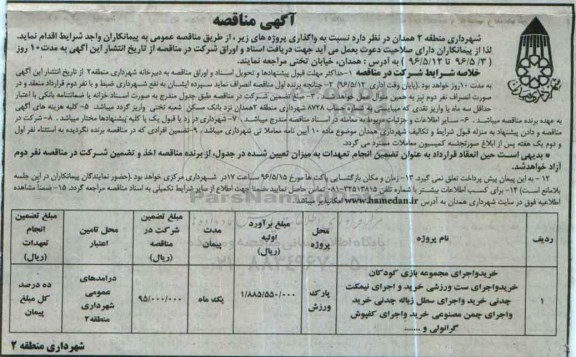 آگهی مناقصه
شهرداری منطقه ۲ همدان در نظر دارد نسبت به واگذاری پروژه های زیر ، از طریق مناقصه عمومی به پیمانکاران واجد شرایط اقدام نماید.
لذا از پیمانکاران دارای صلاحیت دعوت بعمل می آید جهت دریافت اسناد و اوراق شرکت در مناقصه از تاریخ انتشار این آگهی به مدت ۱۰ روز
( ۹۶/۵/۳ تا ۹۶/۵/۱۲ ) به آدرس : همدان، خیابان تختی مراجعه نمایند.
خلاصه شرایط شرکت در مناقصه ۱-حداکثر مهلت قبول پیشنهادها و تحویل اسناد و اوراق مناقصه به دبیرخانه شهرداری منطقه۲ از تاریخ انتشار این آگهی
به مدت ۱۰روز خواهد بود.(پایان وقت اداری ۹۶/۵/۱۲) ۲- چنانچه برنده اول مناقصه انصراف نماید سپرده ایشان به نفع شهرداری ضبط و با نفر دوم قرارداد منعقد و در
صورت انصراف نفر دوم نیز به همین منوال عمل خواهد شد. ۳- تضمین شرکت در مناقصه طبق جدول مندرج به صورت اسناد خزانه یا ضمانتنامه بانکی با اعتبار
حداقل سه ماه یا واریز نقدی که میبایستی به شماره حساب ۸۷۲۸ شهرداری منطقه ۲همدان نزد بانک مسکن شعبه تختی واریز گردد میباشد. ۵- کلیه هزینه های آگهی
به عهده برنده مناقصه میباشد. ۶- سایر اطلاعات و جزئیات مربوطه به معامله در اسناد مناقصه مندرج میباشد. ۷- شهرداری در رد یا قبول یک یا کلیه پیشنهادها مختار میباشد. ۸- شرکت در
مناقصه و دادن پیشنهاد به منزله قبول شرایط و تکالیف شهرداری همدان موضوع ماده ۱۰ آیین نامه معاملاتی می باشد. ۹- تضمین افرادی که در مناقصه برنده نگردیده به استثناء نفر اول
و دوم یک هفته پس از ابلاغ صورتجلسه کمیسیون معاملات مسترد می گردد.
* بدیهی است حین انعقاد قرارداد به عنوان تضمین انجام تعهدات به میزان تعیین شده در جدول، از برنده مناقصه اخذ و تضمین شرکت در مناقصه نفر دوم
آزاد خواهدشد.
۱۲- به این پیمان پیش پرداخت تعلق نمی گیرد. ۱۳- زمان و مکان بازگشایی پاکت ها مورخ ۹۶/۵/۱۵ ساعت ۱۷در شهرداری مرکزی خواهد بود. (حضور نمایندگان پیمانکاران در این جلسه
بلامانع است) ۱۴- برای کسب اطلاعات بیشتر با شماره تلفن ۳۲۵۱۳۸۱۵-۰۸۱ تماس حاصل نمایید ضمنا جهت اطلاع از سایر شرایط تکمیلی به اسناد مناقصه مراجعه گردد. ۱۵- ضمنا مشاهده
اطلاعیه فوق در سایت شهرداری همدان به آدرس www.hamedan.ir
ردیف
نام پروژه
محل پروژه
مبلغ برآورد اولیه (ریال)
مدت پیمان
مبلغ تضمین شرکت در مناقصه (ریال)
محل تامین اعتبار
مبلغ تضمین انجام تعهدات (ریال)
۱
خریدواجرای مجموعه بازی کودکان
خریدواجرای ست ورزشی خرید و اجرای نیمکت
چدنی خرید واجرای سطل زباله چدنی خرید
واجرای چمن مصنوعی خرید واجرای کفپوش
گرانولی و ......
پارک ورزش
۱/۸۸۵/۵۵۰/۰۰۰
یک ماه
۹۵/۰۰۰/۰۰۰
درآمدهای عمومی شهرداری منطقه۲
ده درصد کل مبلغ پیمان
شهرداری منطقه ۲